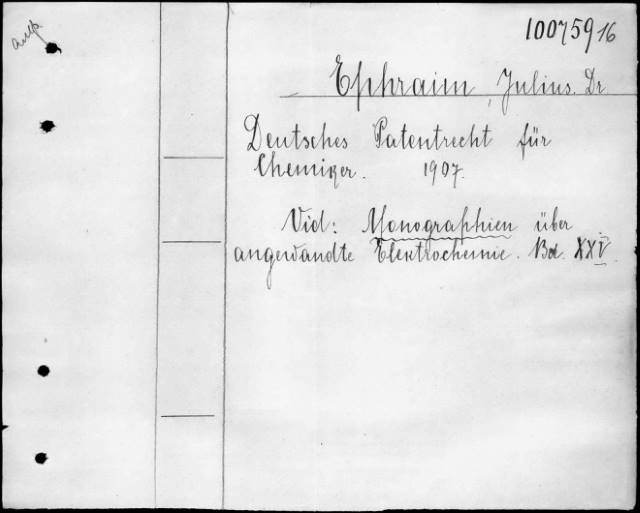 1007591б
Ephraim, Julius. Dr.
Deutsches Patentrecht für
Chemiker. 1907.
Vid: Monographien über
angewandte Elektrochemie. Bd. XXV.